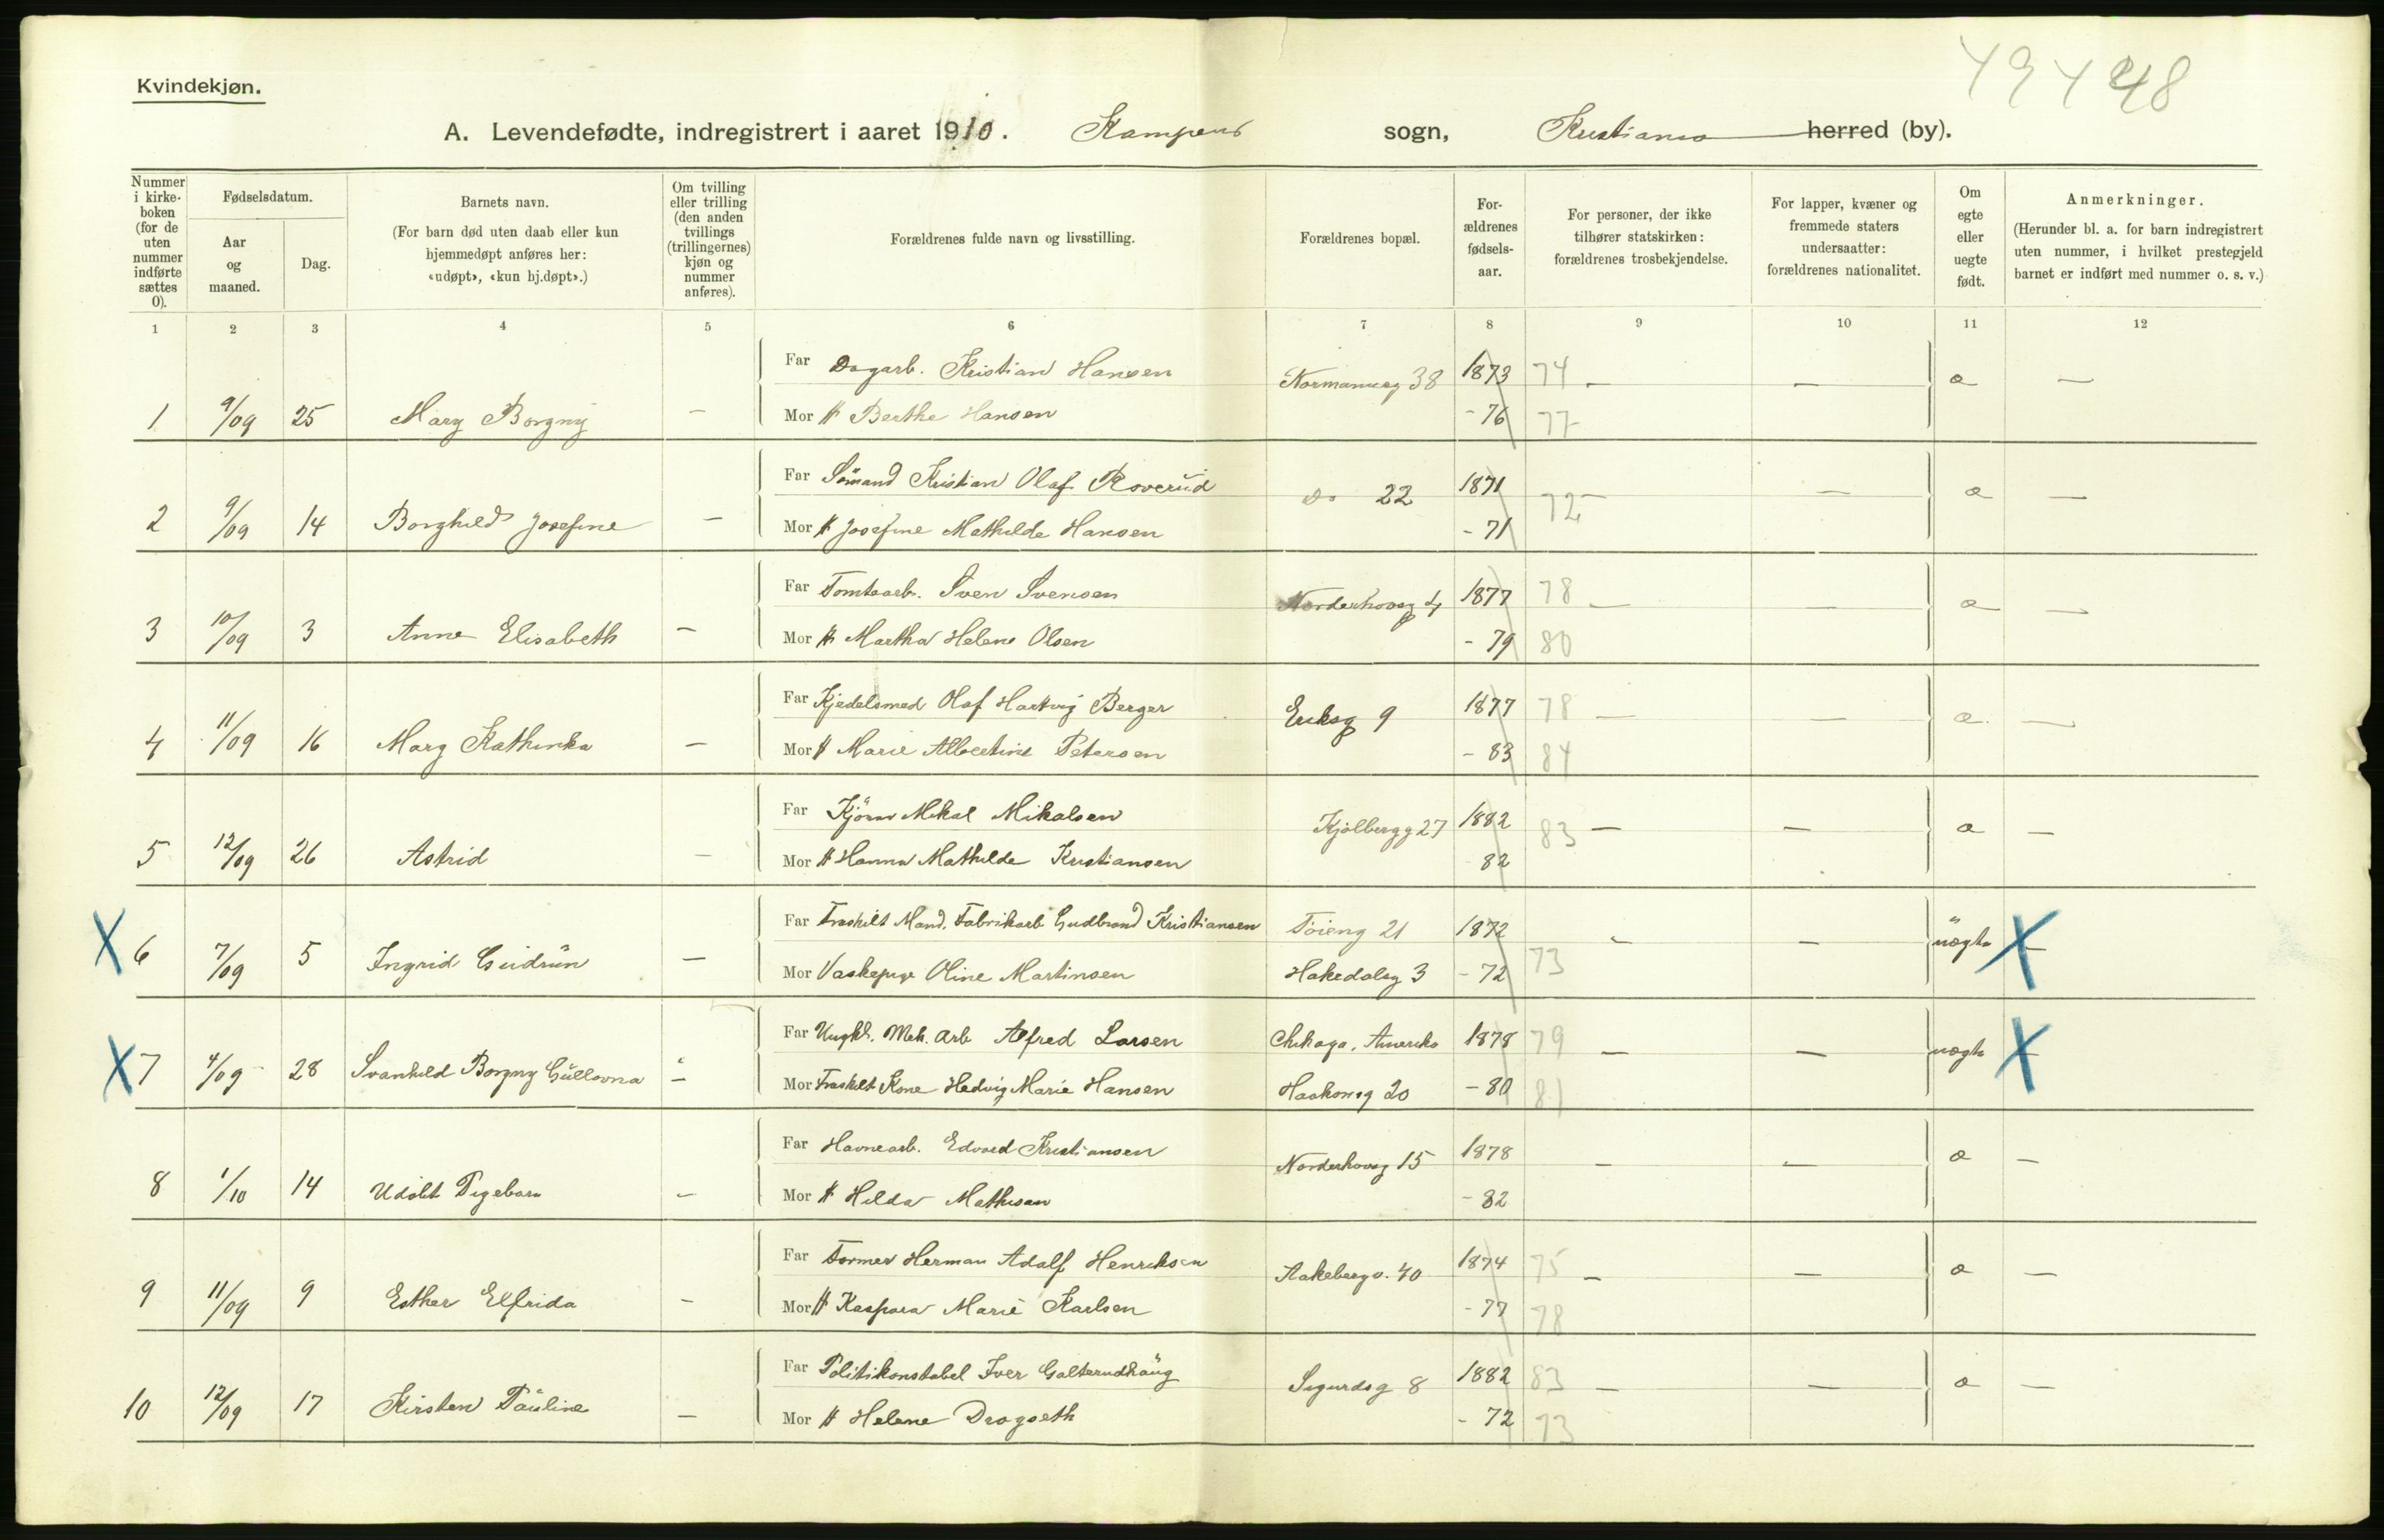 Kvindekjøn.
48
A. Levendefødte, indregistrert i aaret 1910. Kampens sogn, Kristiania herred (by).
Nummer i kirke-boken (for de uten nummer indførte sættes 0).
Fødselsdatum.
Aar og maaned.
Dag.
Barnets navn.
(For barn død uten daab eller kun hjemmedøpt anføres her: «udøpt», «kun hj.døpt».)
Om tvilling eller trilling (den anden tvillings (trillingernes) kjøn og nummer anføres).
Forældrenes fulde navn og livsstilling.
Forældrenes bopæl.
For-ældrenes fødsels-aar.
For personer, der ikke tilhører statskirken: forældrenes trosbekjendelse.
For lapper, kvæner og fremmede staters undersaatter: forældrenes nationalitet.
Om egte eller uegte født.
Anmerkninger.
(Herunder bl. a. for barn indregistrert uten nummer, i hvilket prestegjeld barnet er indført med nummer o. s. v.)
1 2 3 4 5 6 7 8 9 10 11 12
Far Dagarb. Kristian Hansen Normannsg 38 1873 74 — — æ —
1 9/09 25 Mary Borgny — Mor H Berthe Hansen - 76 77
Far Sömand Kristian Olaf Roverud Do 22 1871 72 — — æ —
2 9/09 14 Borghild Josefine — Mor H Josefine Mathilde Hansen - 71
Far Tomtearb. Sven Svensen Norderhovsg 4 1877 78 — — æ —
3 10/09 3 Anne Elisabeth — Mor H Martha Helene Olsen - 79 80
Far Kjedelsmed Olaf Hartvig Berger Eriksg 9 1877 78 — — æ —
4 11/09 16 Mary Kathinka — Mor H Marie Albertine Petersen - 83 84
Far Kjörer Mikal Mikalsen Kjølbergg 27 1882 83 — — æ —
5 12/09 26 Astrid — Mor H Hanna Mathilde Kristiansen 82
Far Fraskilt Mand. Fabrikarb Gudbrand Kristiansen Töieng 21 1872 — — uægte —
X 6 7/09 5 Ingrid Gudrun — Mor Vaskepige Oline Martinsen Hakedalsg 3 - 72 73 X
Far Ungk. Mek. Arb Alfred Larsen Chikago, Amerika 1878 79 — — uægte —
X 7 4/09 28 Svanhild Borgny Gullovna — Mor Fraskilt Kone Hedvig Marie Hansen Haakonsg 20 - 80 81 X
Far Havnearb. Edvard Kristiansen Norderhovsg 15 1878 — — æ —
8 1/10 14 Udöbt Pigebarn — Mor H Hilda Mathisen - 82
Far Former Herman Adolf Henriksen Aakebergv. 40 1874 75 — — æ —
9 11/09 9 Esther Elfrida — Mor H Kaspara Marie Karlsen - 77 78
Far Politikonstabel Iver Galterudhaug Sigurdsg 8 1882 83 — — æ —
10 12/09 17 Kirsten Pauline — Mor H Helene Dragseth - 72 73